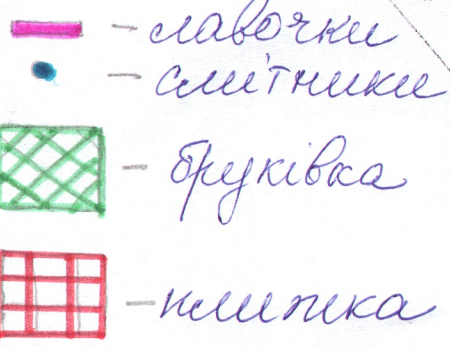 - лавочки
- смітники
- бруківка
- плитка